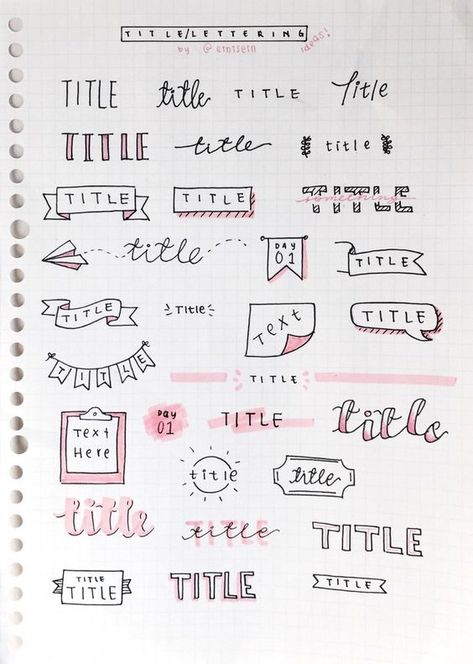 TITLE/LETTERING
by @emtsein ideas!
TITLE title TITLE Title
TITLE title title
TITLE TITLE TITLE something
title DAY 01 TITLE
TITLE Title Text TITLE
TITLE
TITLE
Text Here DAY 01 TITLE title
title title
title title TITLE TITLE
TITLE TITLE TITLE TITLE